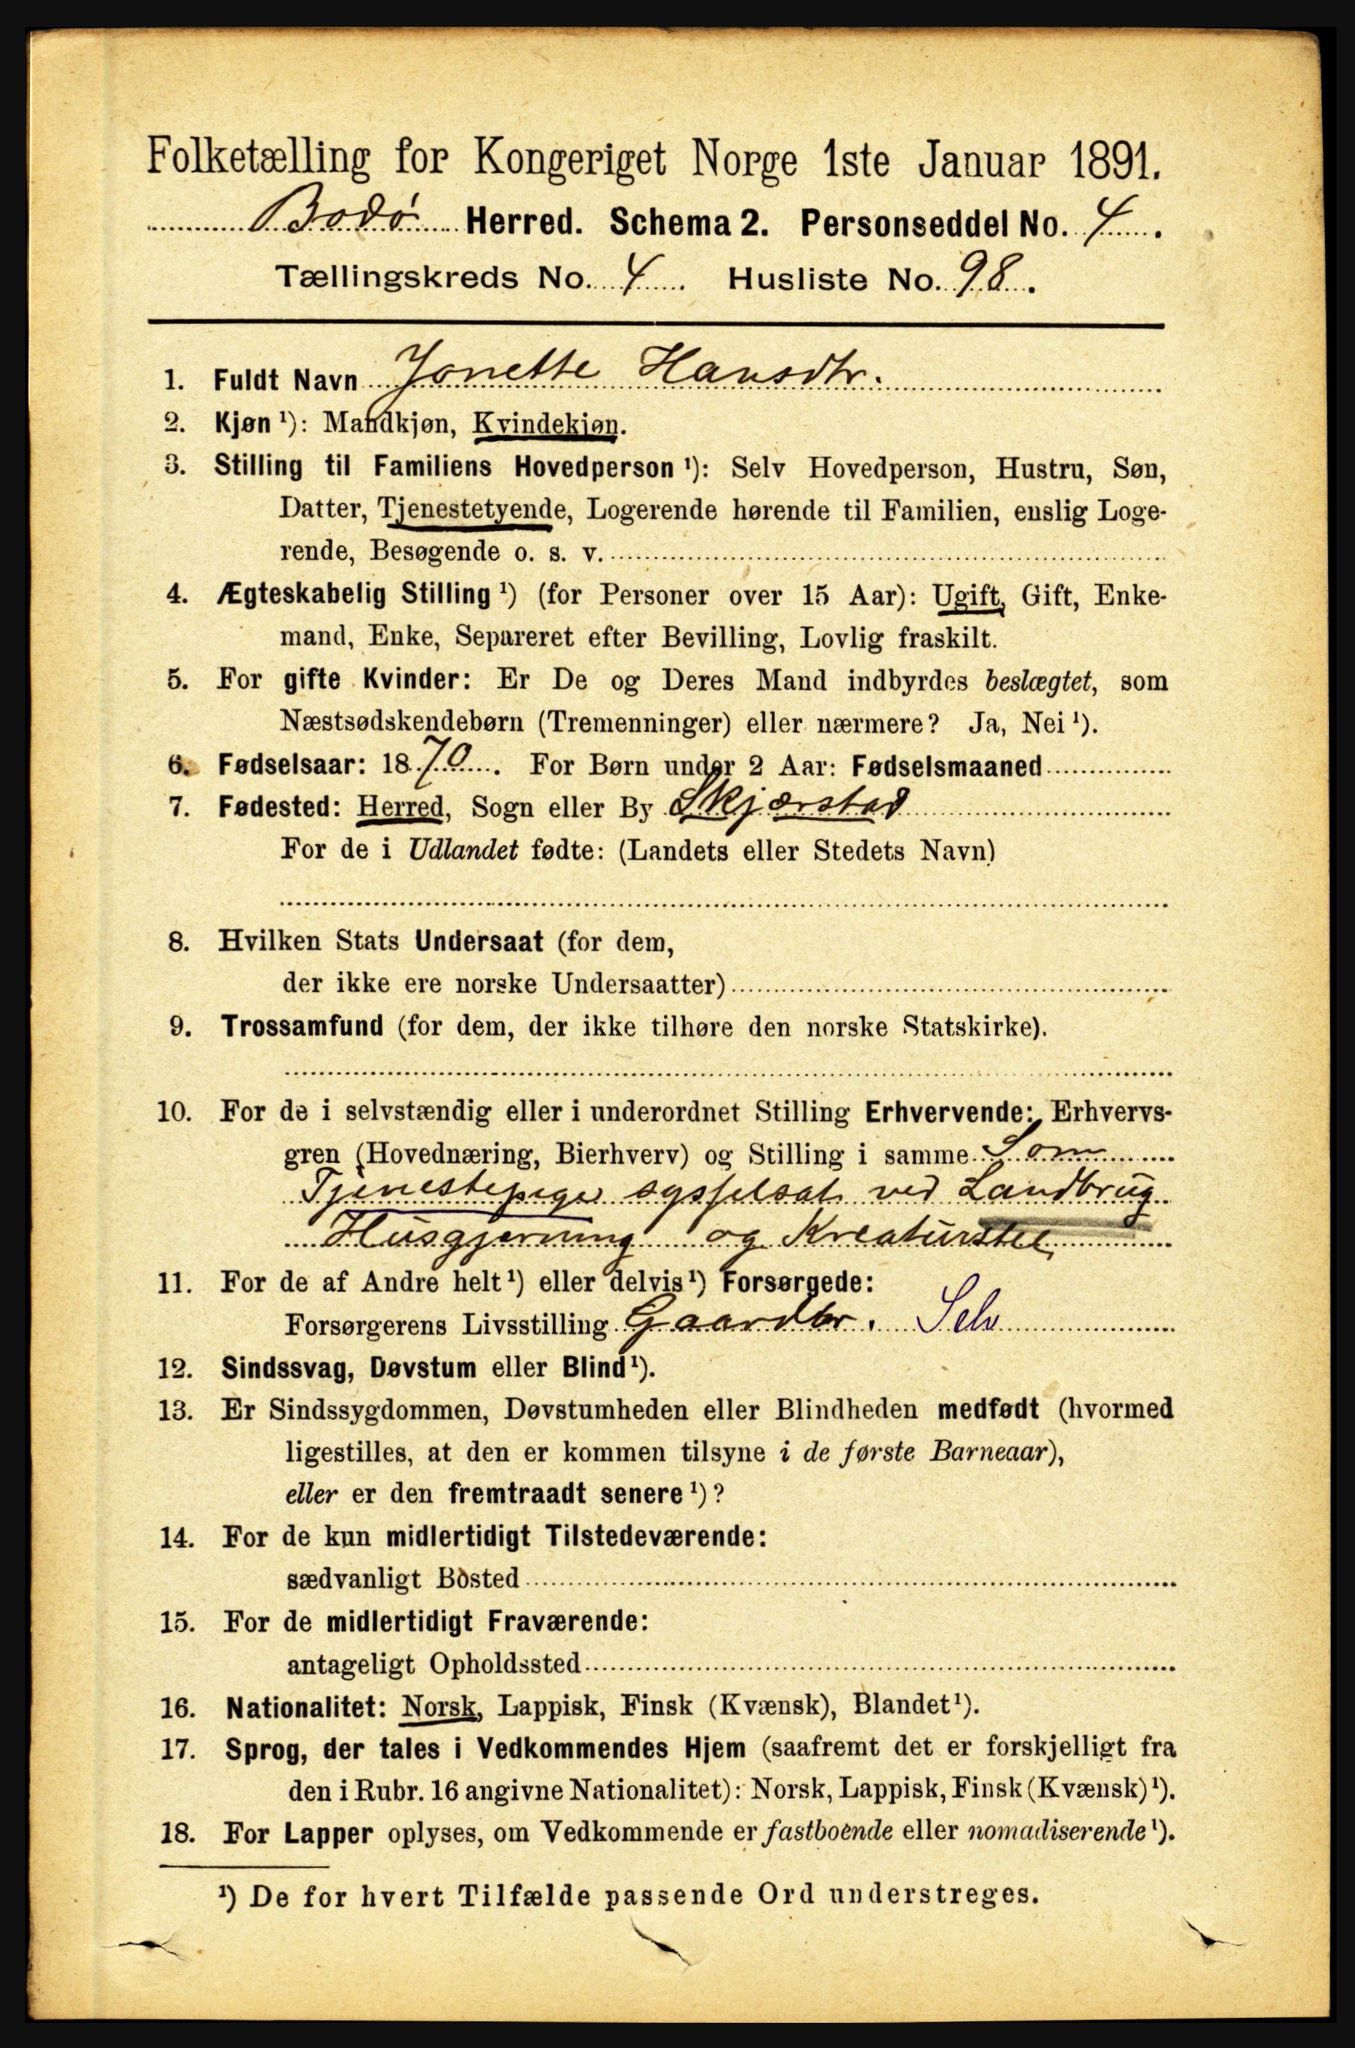 Folketælling for Kongeriget Norge 1ste Januar 1891.
Bodø Herred. Schema 2. Personseddel No. 4.
Tællingskreds No. 4. Husliste No. 98.
1. Fuldt Navn Jonette Hansdtr.
2. Kjøn ¹): Mandkjøn, Kvindekjøn.
3. Stilling til Familiens Hovedperson ¹): Selv Hovedperson, Hustru, Søn,
Datter, Tjenestetyende, Logerende hørende til Familien, enslig Loge-
rende, Besøgende o. s. v.
4. Ægteskabelig Stilling ¹) (for Personer over 15 Aar): Ugift, Gift, Enke-
mand, Enke, Separeret efter Bevilling, Lovlig fraskilt.
5. For gifte Kvinder: Er De og Deres Mand indbyrdes beslægtet, som
Næstsødskendebørn (Tremenninger) eller nærmere? Ja, Nei ¹).
6. Fødselsaar: 1870. For Børn under 2 Aar: Fødselsmaaned
7. Fødested: Herred, Sogn eller By Skjærstad
For de i Udlandet fødte: (Landets eller Stedets Navn)
8. Hvilken Stats Undersaat (for dem,
der ikke ere norske Undersaatter)
9. Trossamfund (for dem, der ikke tilhøre den norske Statskirke).
10. For de i selvstændig eller i underordnet Stilling Erhvervende: Erhvervs-
gren (Hovednæring, Bierhverv) og Stilling i samme Som
Tjenestepige sysselsat ved Landbrug
Husgjerning og Kreaturstel
11. For de af Andre helt ¹) eller delvis ¹) Forsørgede:
Forsørgerens Livsstilling Gaardbr. Selv
12. Sindssvag, Døvstum eller Blind ¹).
13. Er Sindssygdommen, Døvstumheden eller Blindheden medfødt (hvormed
ligestilles, at den er kommen tilsyne i de første Barneaar),
eller er den fremtraadt senere ¹)?
14. For de kun midlertidigt Tilstedeværende:
sædvanligt Bosted
15. For de midlertidigt Fraværende:
antageligt Opholdssted
16. Nationalitet: Norsk, Lappisk, Finsk (Kvænsk), Blandet ¹).
17. Sprog, der tales i Vedkommendes Hjem (saafremt det er forskjelligt fra
den i Rubr. 16 angivne Nationalitet): Norsk, Lappisk, Finsk (Kvænsk) ¹).
18. For Lapper oplyses, om Vedkommende er fastboende eller nomadiserende ¹).
¹) De for hvert Tilfælde passende Ord understreges.